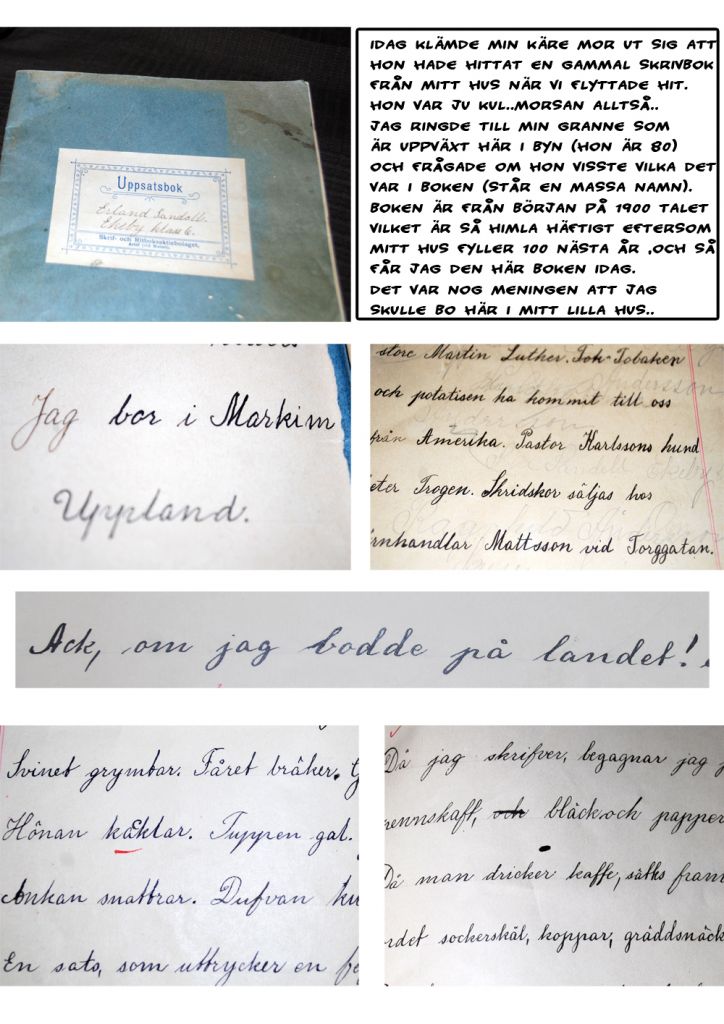 Uppsatsbok
Erland Sandell.
Ekeby klass 6.
Skrif- och Ritboksaktiebolaget,
IDAG KLÄMDE MIN KÄRE MOR UT SIG ATT
HON HADE HITTAT EN GAMMAL SKRIVBOK
FRÅN MITT HUS NÄR VI FLYTTADE HIT.
HON VAR JU KUL..MORSAN ALLTSÅ..
JAG RINGDE TILL MIN GRANNE SOM
ÄR UPPVÄXT HÄR I BYN (HON ÄR 80)
OCH FRÅGADE OM HON VISSTE VILKA DET
VAR I BOKEN (STÅR EN MASSA NAMN).
BOKEN ÄR FRÅN BÖRJAN PÅ 1900 TALET
VILKET ÄR SÅ HIMLA HÄFTIGT EFTERSOM
MITT HUS FYLLER 100 NÄSTA ÅR ,OCH SÅ
FÅR JAG DEN HÄR BOKEN IDAG.
DET VAR NOG MENINGEN ATT JAG
SKULLE BO HÄR I MITT LILLA HUS..
Jag bor i Markim
Uppland.
store Martin Luther. Tok-Tobaken
och potatisen ha kommit till oss
från Amerika. Pastor Karlssons hund
eter Trogen. Skridskor säljas hos
ärnhandlar Mattsson vid Torggatan.
Ack, om jag bodde på landet!
Svinet grymtar. Fåret bräker.
Hönan kacklar. Tuppen gal.
Ankan snattrar. Dufvan ku
En sats, som uttrycker en be
Då jag skrifver, begagnar jag
pennskaft, och bläck och papper
Då man dricker kaffe, sätts fram
ndet sockerskål, koppar, gräddsnäck